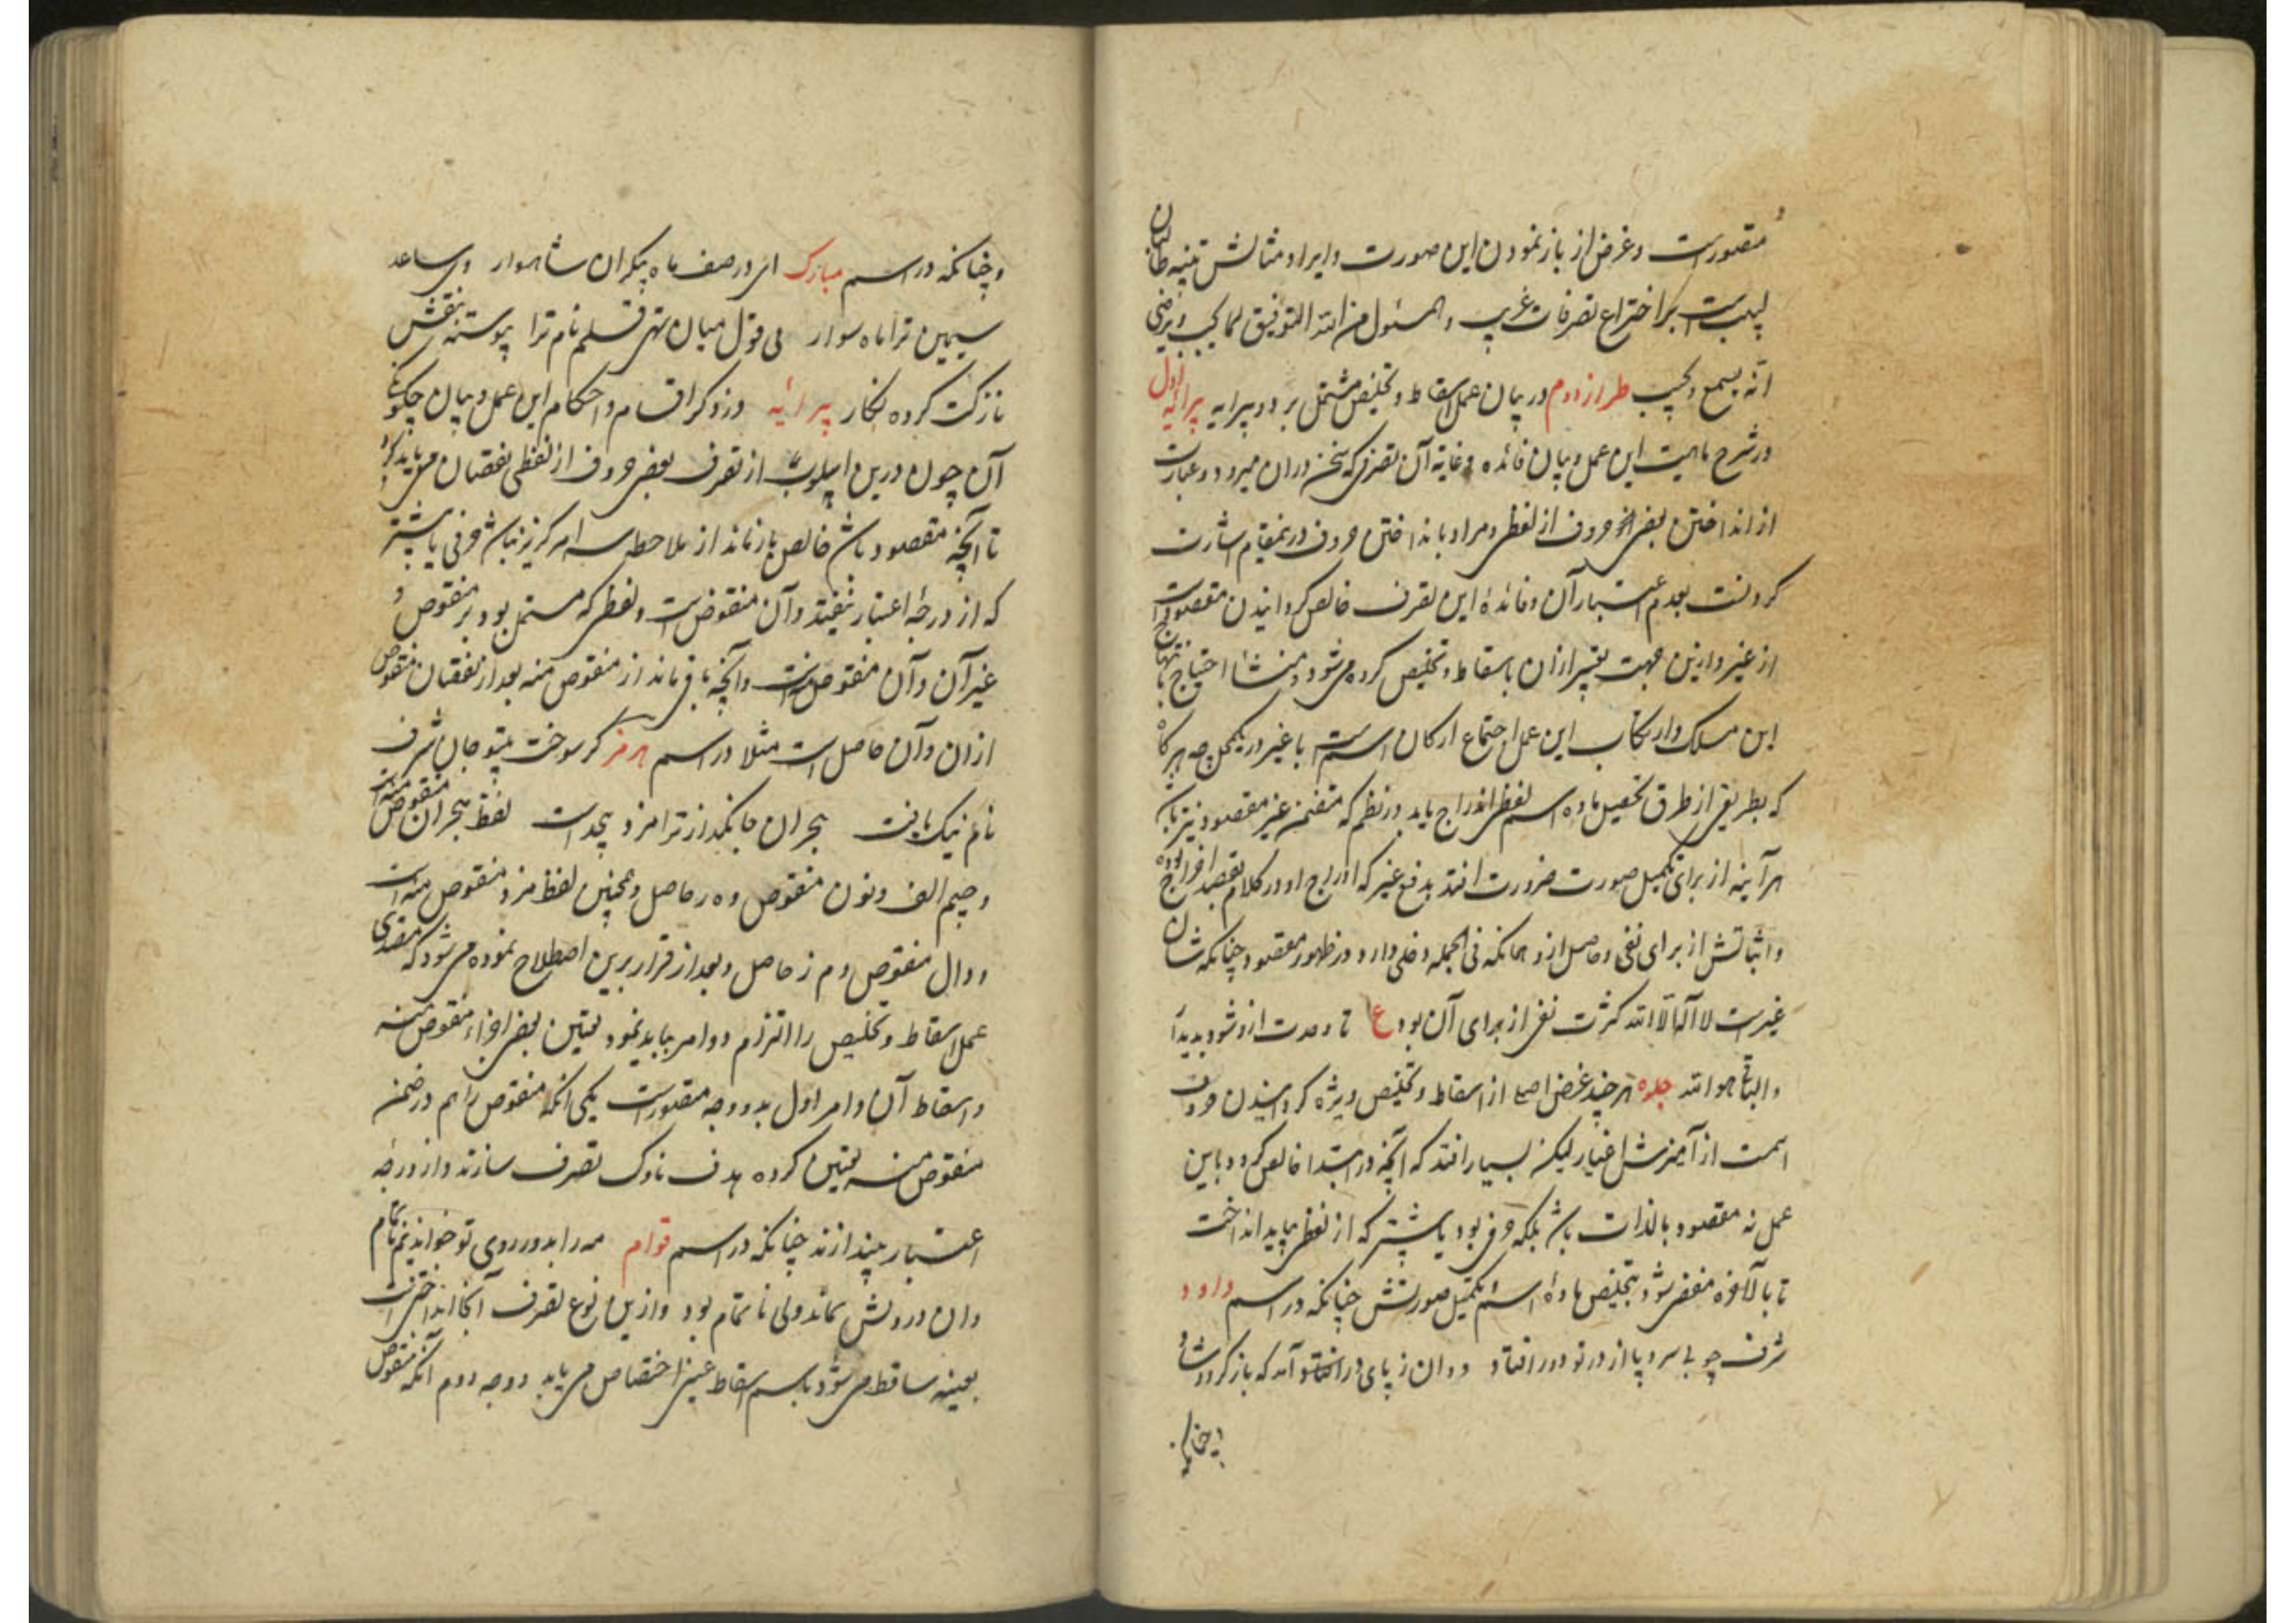 مقصورست و غرض از باز نمودن این صورت و ایراد مثالش تنبیه طالبان
لبیب است بر اختراع تصرفات غریب و المسئول من الله التوفیق لما یحب و یرضی
انه یسمع و یجیب طراز دوم در بیان عمل اسقاط و تخلیص مشتمل بر دو پیرایه پیرایه اول
در شرح ماهیت این عمل و بیان فائده و غایة آن تصرفی که سخن در ان میرود عبارت
از انداختن بعضی حروف از لفظی و مراد بانداختن حروف درینمقام اشارت
کردنست بعدم اعتبار آن و فائدهٔ این تصرف خالص گردانیدن مقصودست
از غیر و ازین جهت تعبیر ازان باسقاط و تخلیص کرده می‌شود و منشاء احتیاج بانتهاج
این مسلک و ارتکاب این عمل اجتماع ارکان اسم است با غیر در یکمحل چه هرگاه
که بطریقی از طرق تحصیل ماده اسم لفظی اندراج یابد در نظم که متضمن غیر مقصود نیز باشد
هرآینه از برای تکمیل صورت ضرورت افتد بدفع غیر که ادراج او در کلام بقصد اخراج بوده
و اثباتش از برای نفی و حاصل ازو همانکه فی الجمله دخلی دارد در ظهور مقصود چنانکه شان
غیرست لا اله الا الله کثرت نفی از برای آن بود ع تا وحدت ازو شود پدیدآ
و الباقی هو الله جلوه هر چند غرض اصلی از اسقاط و تخلیص ویژه گردانیدن حروف
اسمت از آمیزش اغیار لیکن بسیار افتد که آنچه در ابتدا خالص گردد باین
عمل نه مقصود بالذات باشد بلکه حرفی بود یا بیشتر که از لفظی بباید انداخت
تا بالآخره مفضی شود بتخلیص مادهٔ اسم و تکمیل صورتش چنانکه در اسم داود
شرف چو بی سر و پا از در تو دور افتاد و دوان ز پای در افتاد و آمد که باز گردد شاد
و چنانکه
و چنانکه در اسم مبارک ای در صف ماه پیکران شاهوار وی ساعد
سیمین ترا ماه سوار بی قول میان تهی قلم نام ترا پیوسته بنقش
نازکت کرده نگار پیرایه در ذکر اقسام و احکام این عمل و بیان چگونگی
آن چون درین اسلوب از تصرف بعضی حروف از لفظی نقصان می‌باید کرد
تا آنچه مقصود باشد خالص بازماند از ملاحظه سه امر گریز نباشد حرفی یا بیشتر
که از درجهٔ اعتبار بیفتد و آن منقوص است و لفظی که مشتمل بود بر منقوص و
غیر آن و آن منقوص منه است و آنچه باقی ماند از منقوص منه بعد از نقصان منقوص
ازان و آن حاصل است مثلا در اسم هرمز گر سوخت بیتو جان شرف
نام نیک یافت هجران جانگداز ترا مزد بیحدست لفظ هجران منقوص منه است
و جیم الف و نون منقوص و ه ر حاصل و همچنین لفظ مزد منقوص منه است
و دال منقوص و م ز حاصل و بعد از قرار برین اصطلاح نموده می‌شود که متصدی
عمل اسقاط و تخلیص را التزام دو امر بباید نمود تعیین بعضی اجزاء منقوص منه
و اسقاط آن و امر اول بدو وجه مقصورست یکی آنکه منقوص را هم در ضمن
منقوص منه تعیین کرده هدف ناوک تصرف سازند و از درجه
اعتبار بیندازند چنانکه در اسم قوام مه را بدو روی تو خواندیم تمام
وان در دلش بماند ولی ناتمام بود و ازین نوع تصرف آنجا انداختن است
بعینه ساقط می‌شود باسم اسقاط عینی اختصاص می‌یابد و وجه دوم آنکه منقوص